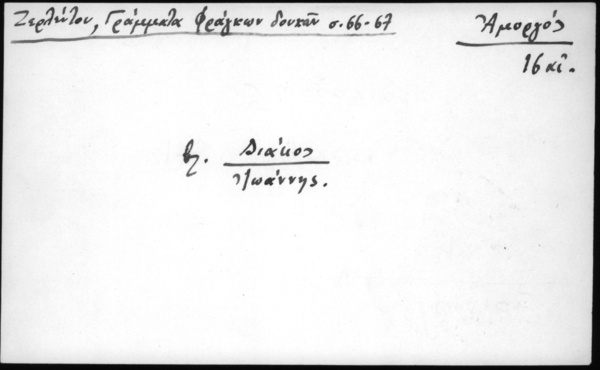 Ζερλέντου, Γράμματα Φράγκων δουκῶν σ. 66-67
Ἀμοργός
16 αἰ.
βλ. Διάκος
Ἰωάννης.